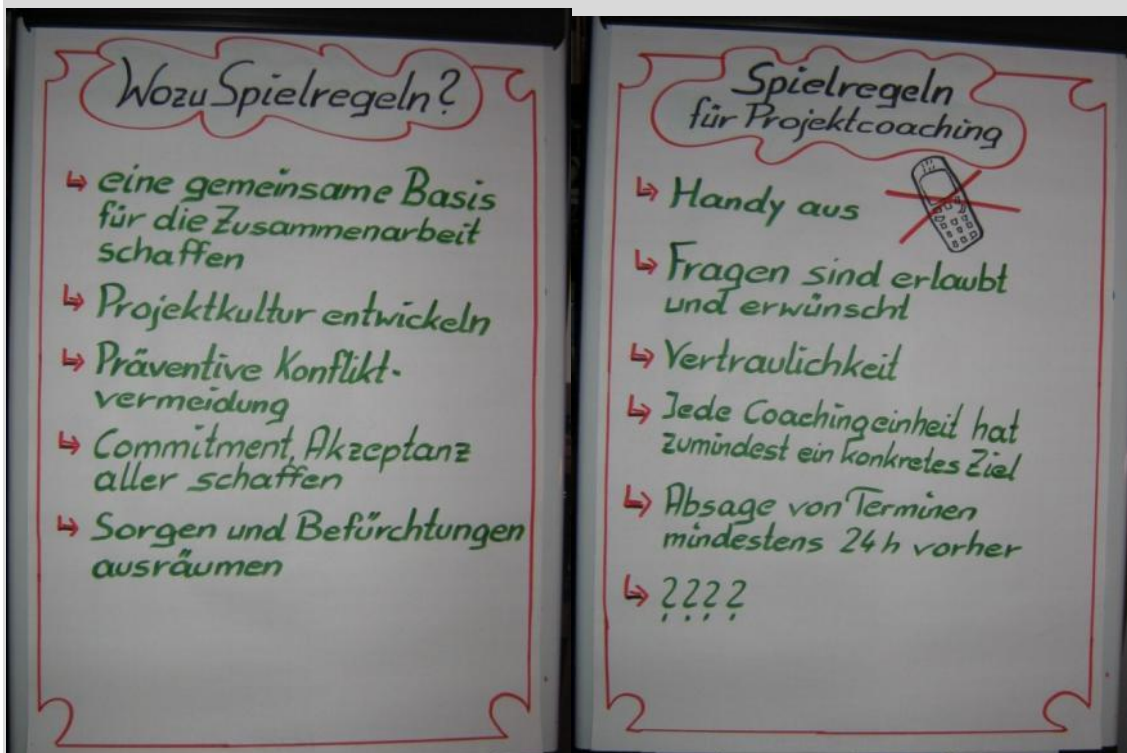 Wozu Spielregeln?
↳ eine gemeinsame Basis
für die Zusammenarbeit
schaffen
↳ Projektkultur entwickeln
↳ Präventive Konflikt-
vermeidung
↳ Commitment, Akzeptanz
aller schaffen
↳ Sorgen und Befürchtungen
ausräumen
Spielregeln
für Projektcoaching
↳ Handy aus
↳ Fragen sind erlaubt
und erwünscht
↳ Vertraulichkeit
↳ Jede Coachingeinheit hat
zumindest ein konkretes Ziel
↳ Absage von Terminen
mindestens 24 h vorher
↳ ????